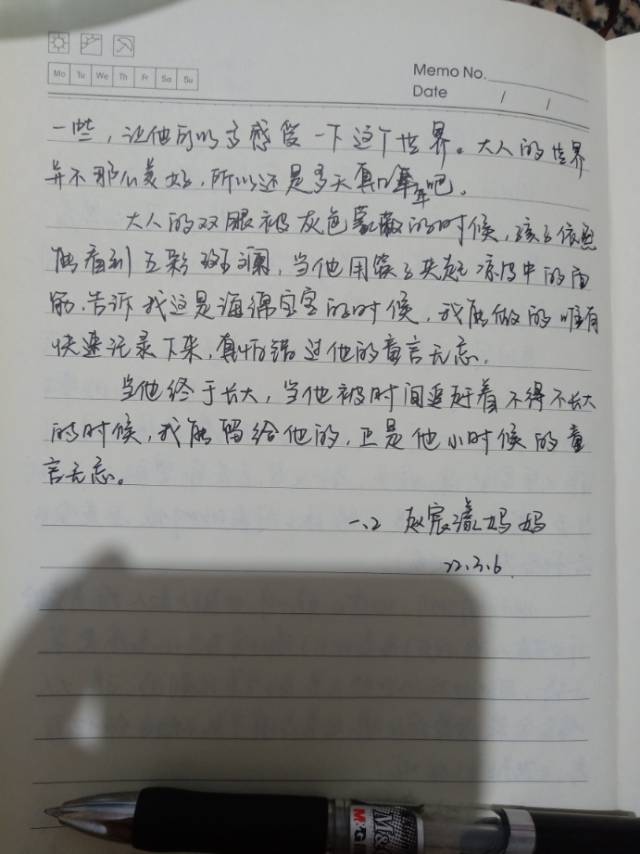 Mo Tu We Th Fr Sa Su
Memo No.
Date / /
一些，让他可以多感受一下这个世界。大人的世界
并不那么美好，所以还是多天真几年吧。
大人的双眼被灰色蒙蔽的时候，孩子依然
能看到五彩斑斓，当他用筷子夹起汤中的面
筋，告诉我这是海绵宝宝的时候，我能做的唯有
快速记录下来，真怕错过他的童言无忌。
当他终于长大，当他被时间追赶着不得不长大
的时候，我能留给他的，正是他小时候的童
言无忌。
一、2 赵宸漾妈妈
22.3.6
M&G